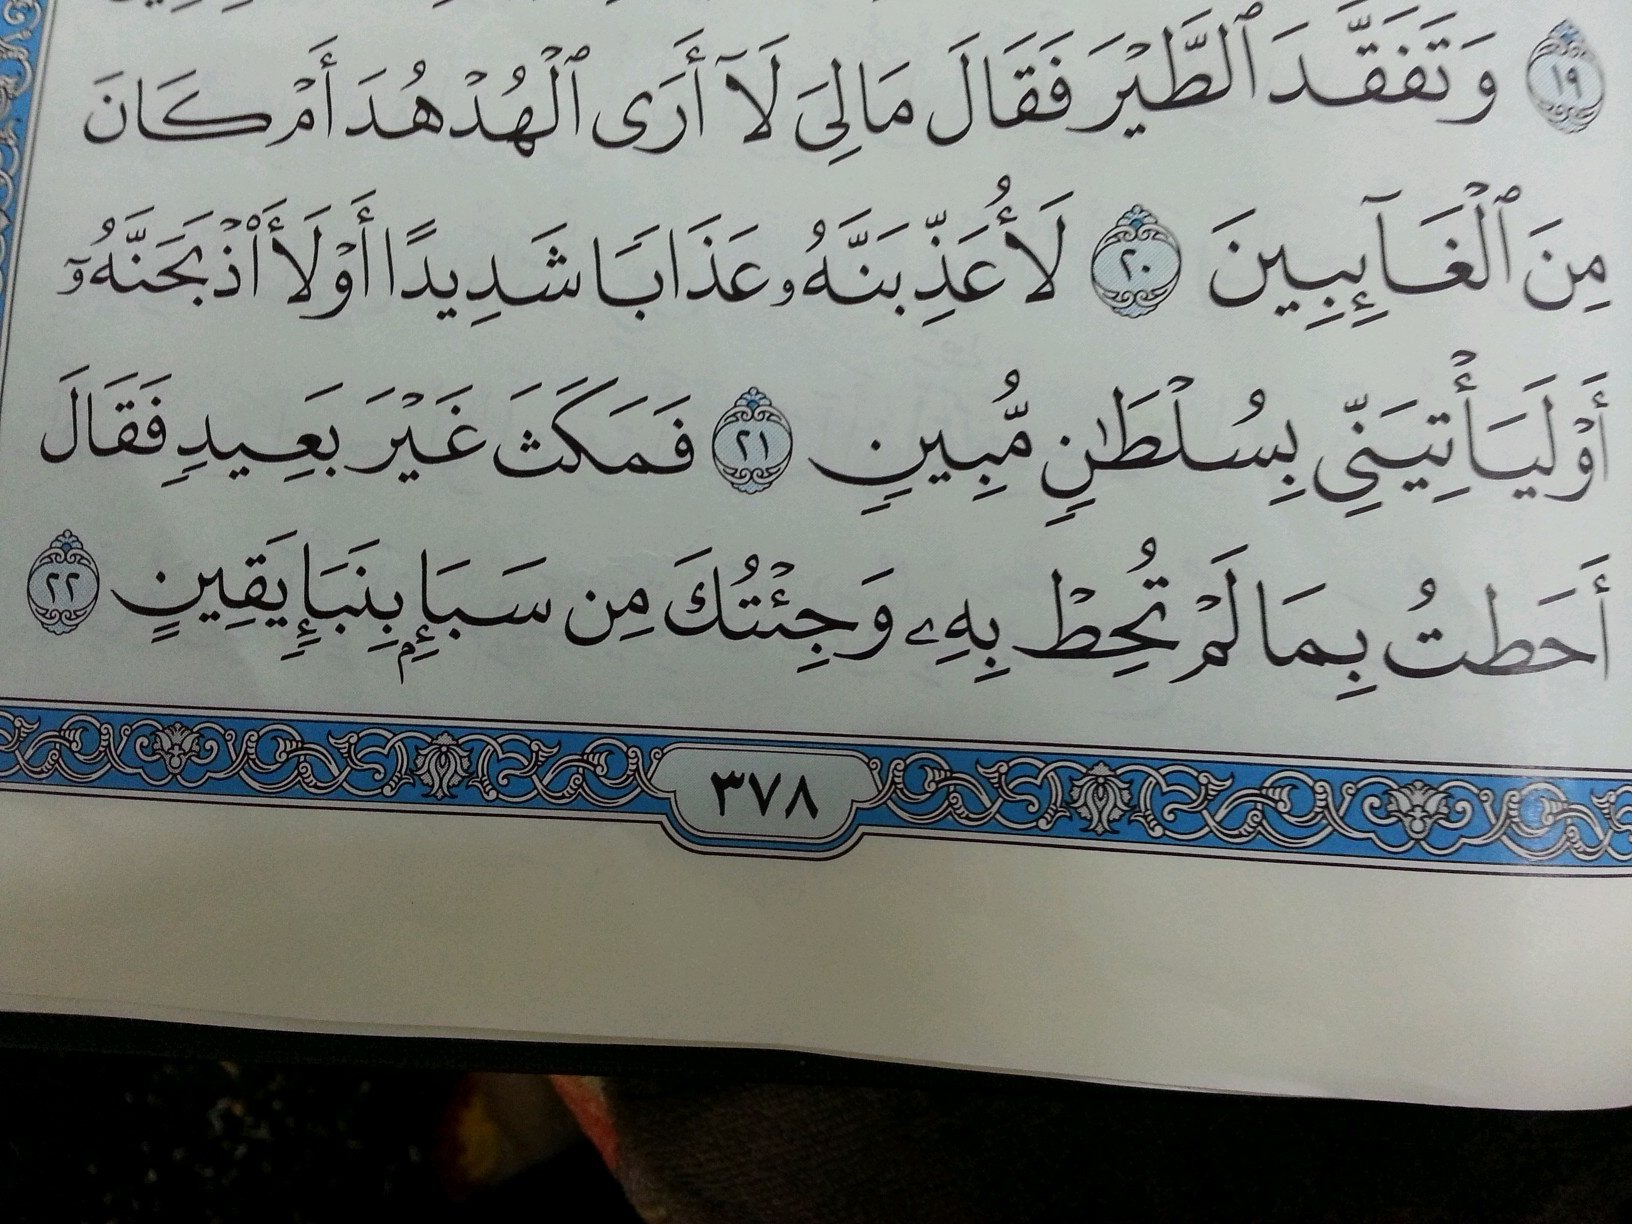 ١٩ وَتَفَقَّدَ ٱلطَّيْرَ فَقَالَ مَالِيَ لَآ أَرَى ٱلْهُدْهُدَ أَمْ كَانَ
مِنَ ٱلْغَآئِبِينَ ٢٠ لَأُعَذِّبَنَّهُۥ عَذَابًا شَدِيدًا أَوْ لَأَا۟ذْبَحَنَّهُۥٓ
أَوْ لَيَأْتِيَنِّى بِسُلْطَٰنٍ مُّبِينٍ ٢١ فَمَكَثَ غَيْرَ بَعِيدٍ فَقَالَ
أَحَطتُ بِمَا لَمْ تُحِطْ بِهِۦ وَجِئْتُكَ مِن سَبَإٍۭ بِنَبَإٍ يَقِينٍ ٢٢
٣٧٨